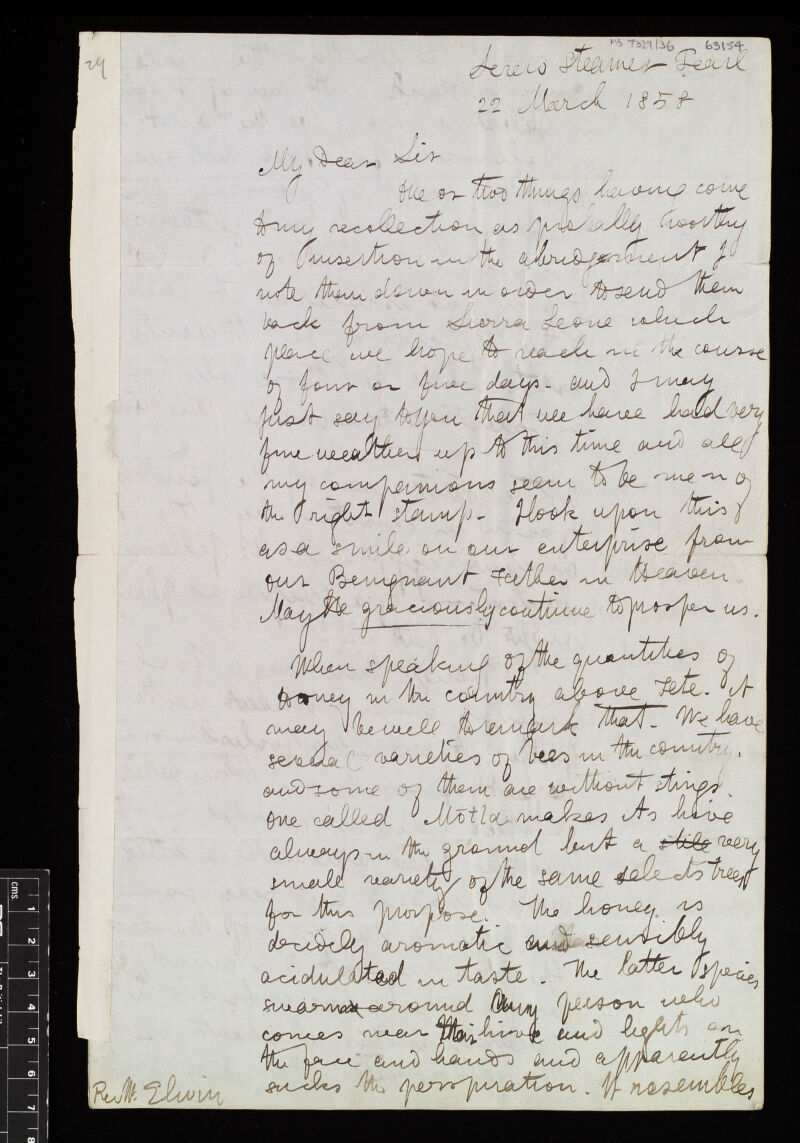 MS 7329/36 63154
29
Screw Steamer Pearl
22 March 1858
My Dear Sir
One or two things having come
to my recollection as probally worthy
of insertion in the abridgement I
note them down in order to send them
back from Sierra Leone which
place we hope to reach in the course
of four or five days - and I may
just say to you that we have had very
fine weather up to this time and all
my companions seem to be men of
the right stamp - I look upon this
as a smile on our enterprise from
our Benignant Father in Heaven.
May He graciously continue to prosper us.
When speaking of the quantities of
honey in the country above Tete. it
may be well to remark that - We have
several varieties of bees in the country.
and some of them are without stings.
One called Motla makes its hive
always in the ground but a still very
small variety of the same selects trees
for this purpose. The honey is
decidely aromatic and sensibly
acidulated in taste. The latter species
swarm around any person who
comes near their hive and lights on
the face and hands and apparently
sucks the perspiration. It resembles
Rev W. Elwin
cms
1
2
3
4
5
6
7
8